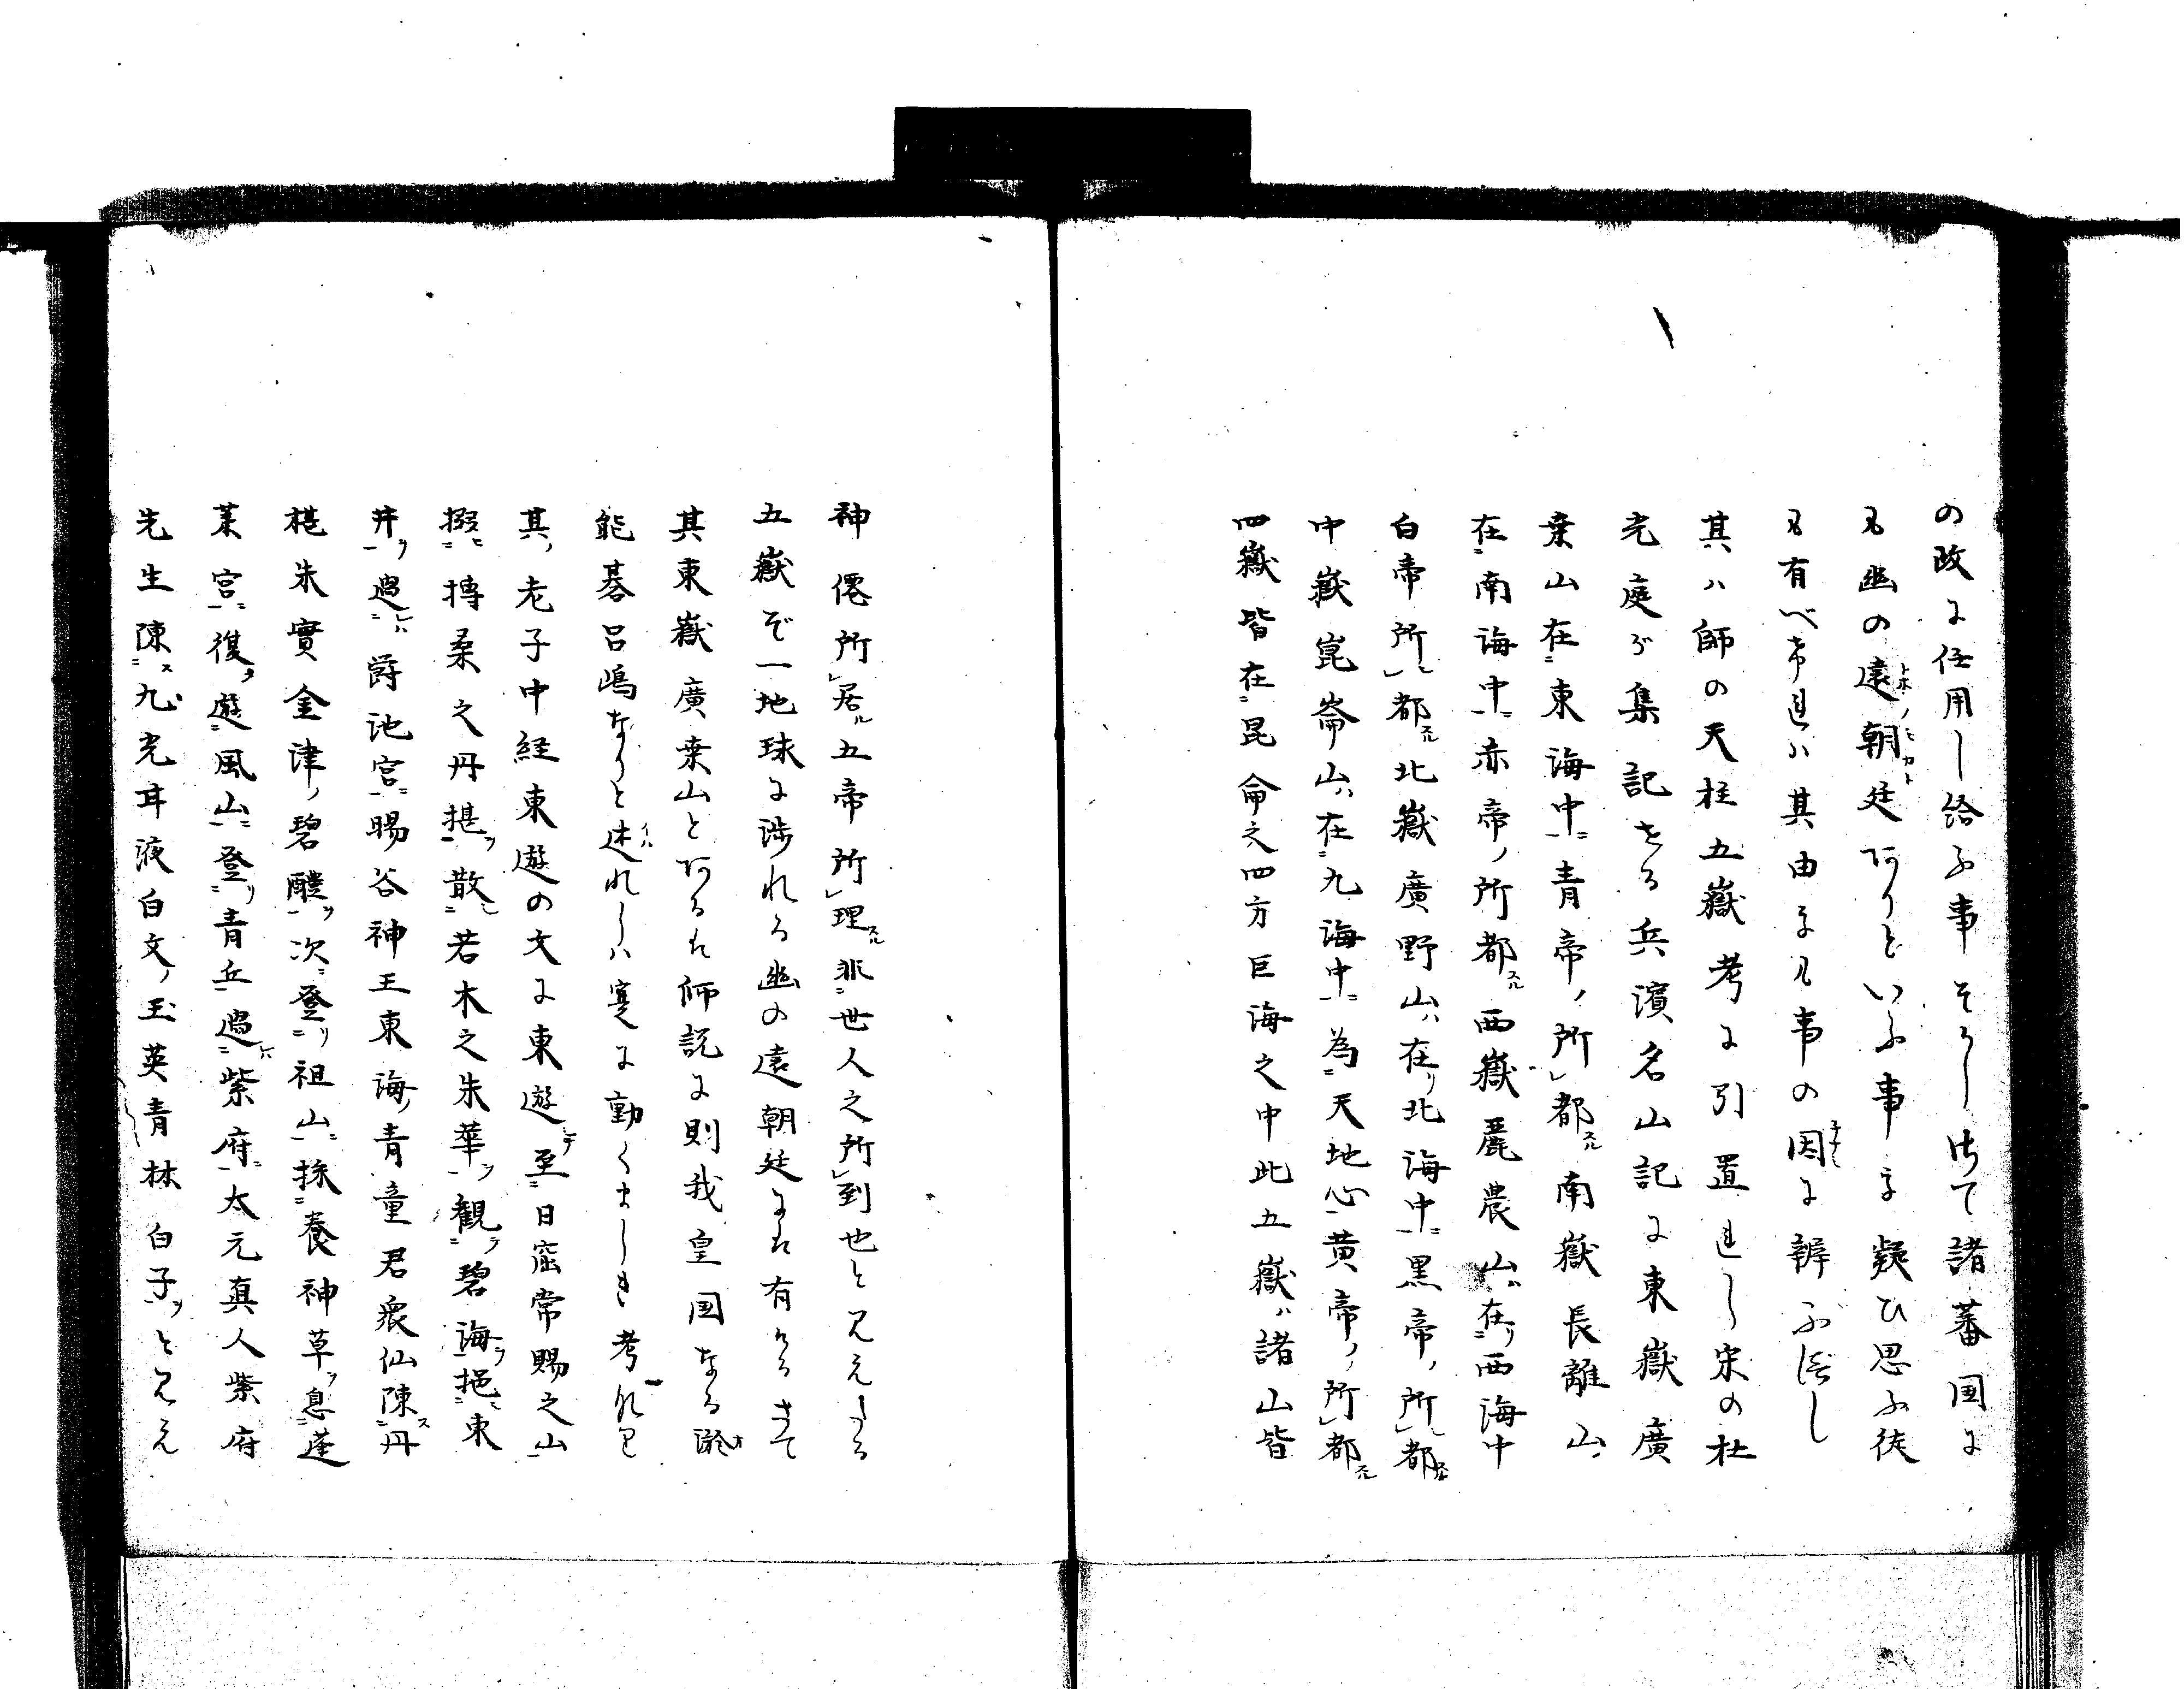 の政に任用し給ふ事そかし斯て諸蕃国に
も幽の遠朝廷ありといふ事を疑ひ思ふ徒
も有べければ其由をも事の因に辨ふべし
其ハ師の天柱五嶽考に引置れし宋の杜
光庭が集記せる兵濱名山記に東嶽廣
桑山在東海中青帝ノ所都スル南嶽長離山
在南海中赤帝ノ所都スル西嶽麗農山ハ在リ西海中
白帝所都スル北嶽廣野山ハ在リ北海中黒帝ノ所都スル
中嶽崑崙山ハ在九海中為天地心黄帝ノ所都スル
四嶽皆在昆侖之四方巨海之中此五嶽ハ諸山皆
神僊所居ル五帝所理スル非世人之所到也と見えたる
五嶽ぞ一地球に渉れる幽の遠朝廷にハ有ける さて
其東嶽廣桑山とあるは師説に則我皇国なる淤
能碁呂嶋なりと述れしハ寔に動くましき考なれ
其ノ老子中経東遊の文に東遊シテ至日窟常賜之山
掇摶桑之丹椹ヲ散若木之朱華ヲ觀テ碧海ヲ挹東
井ヲ過レハ爵池宮暘谷神王東海ノ青童君衆仙陳ス丹
椹朱實金津ノ碧醴ヲ次登リ祖山採養神草ヲ息蓬
莱宮復タ遊風山登リ青丘過レハ紫府太元真人紫府
先生陳ス九光耳液白文ノ玉英青林白子ヲと見え